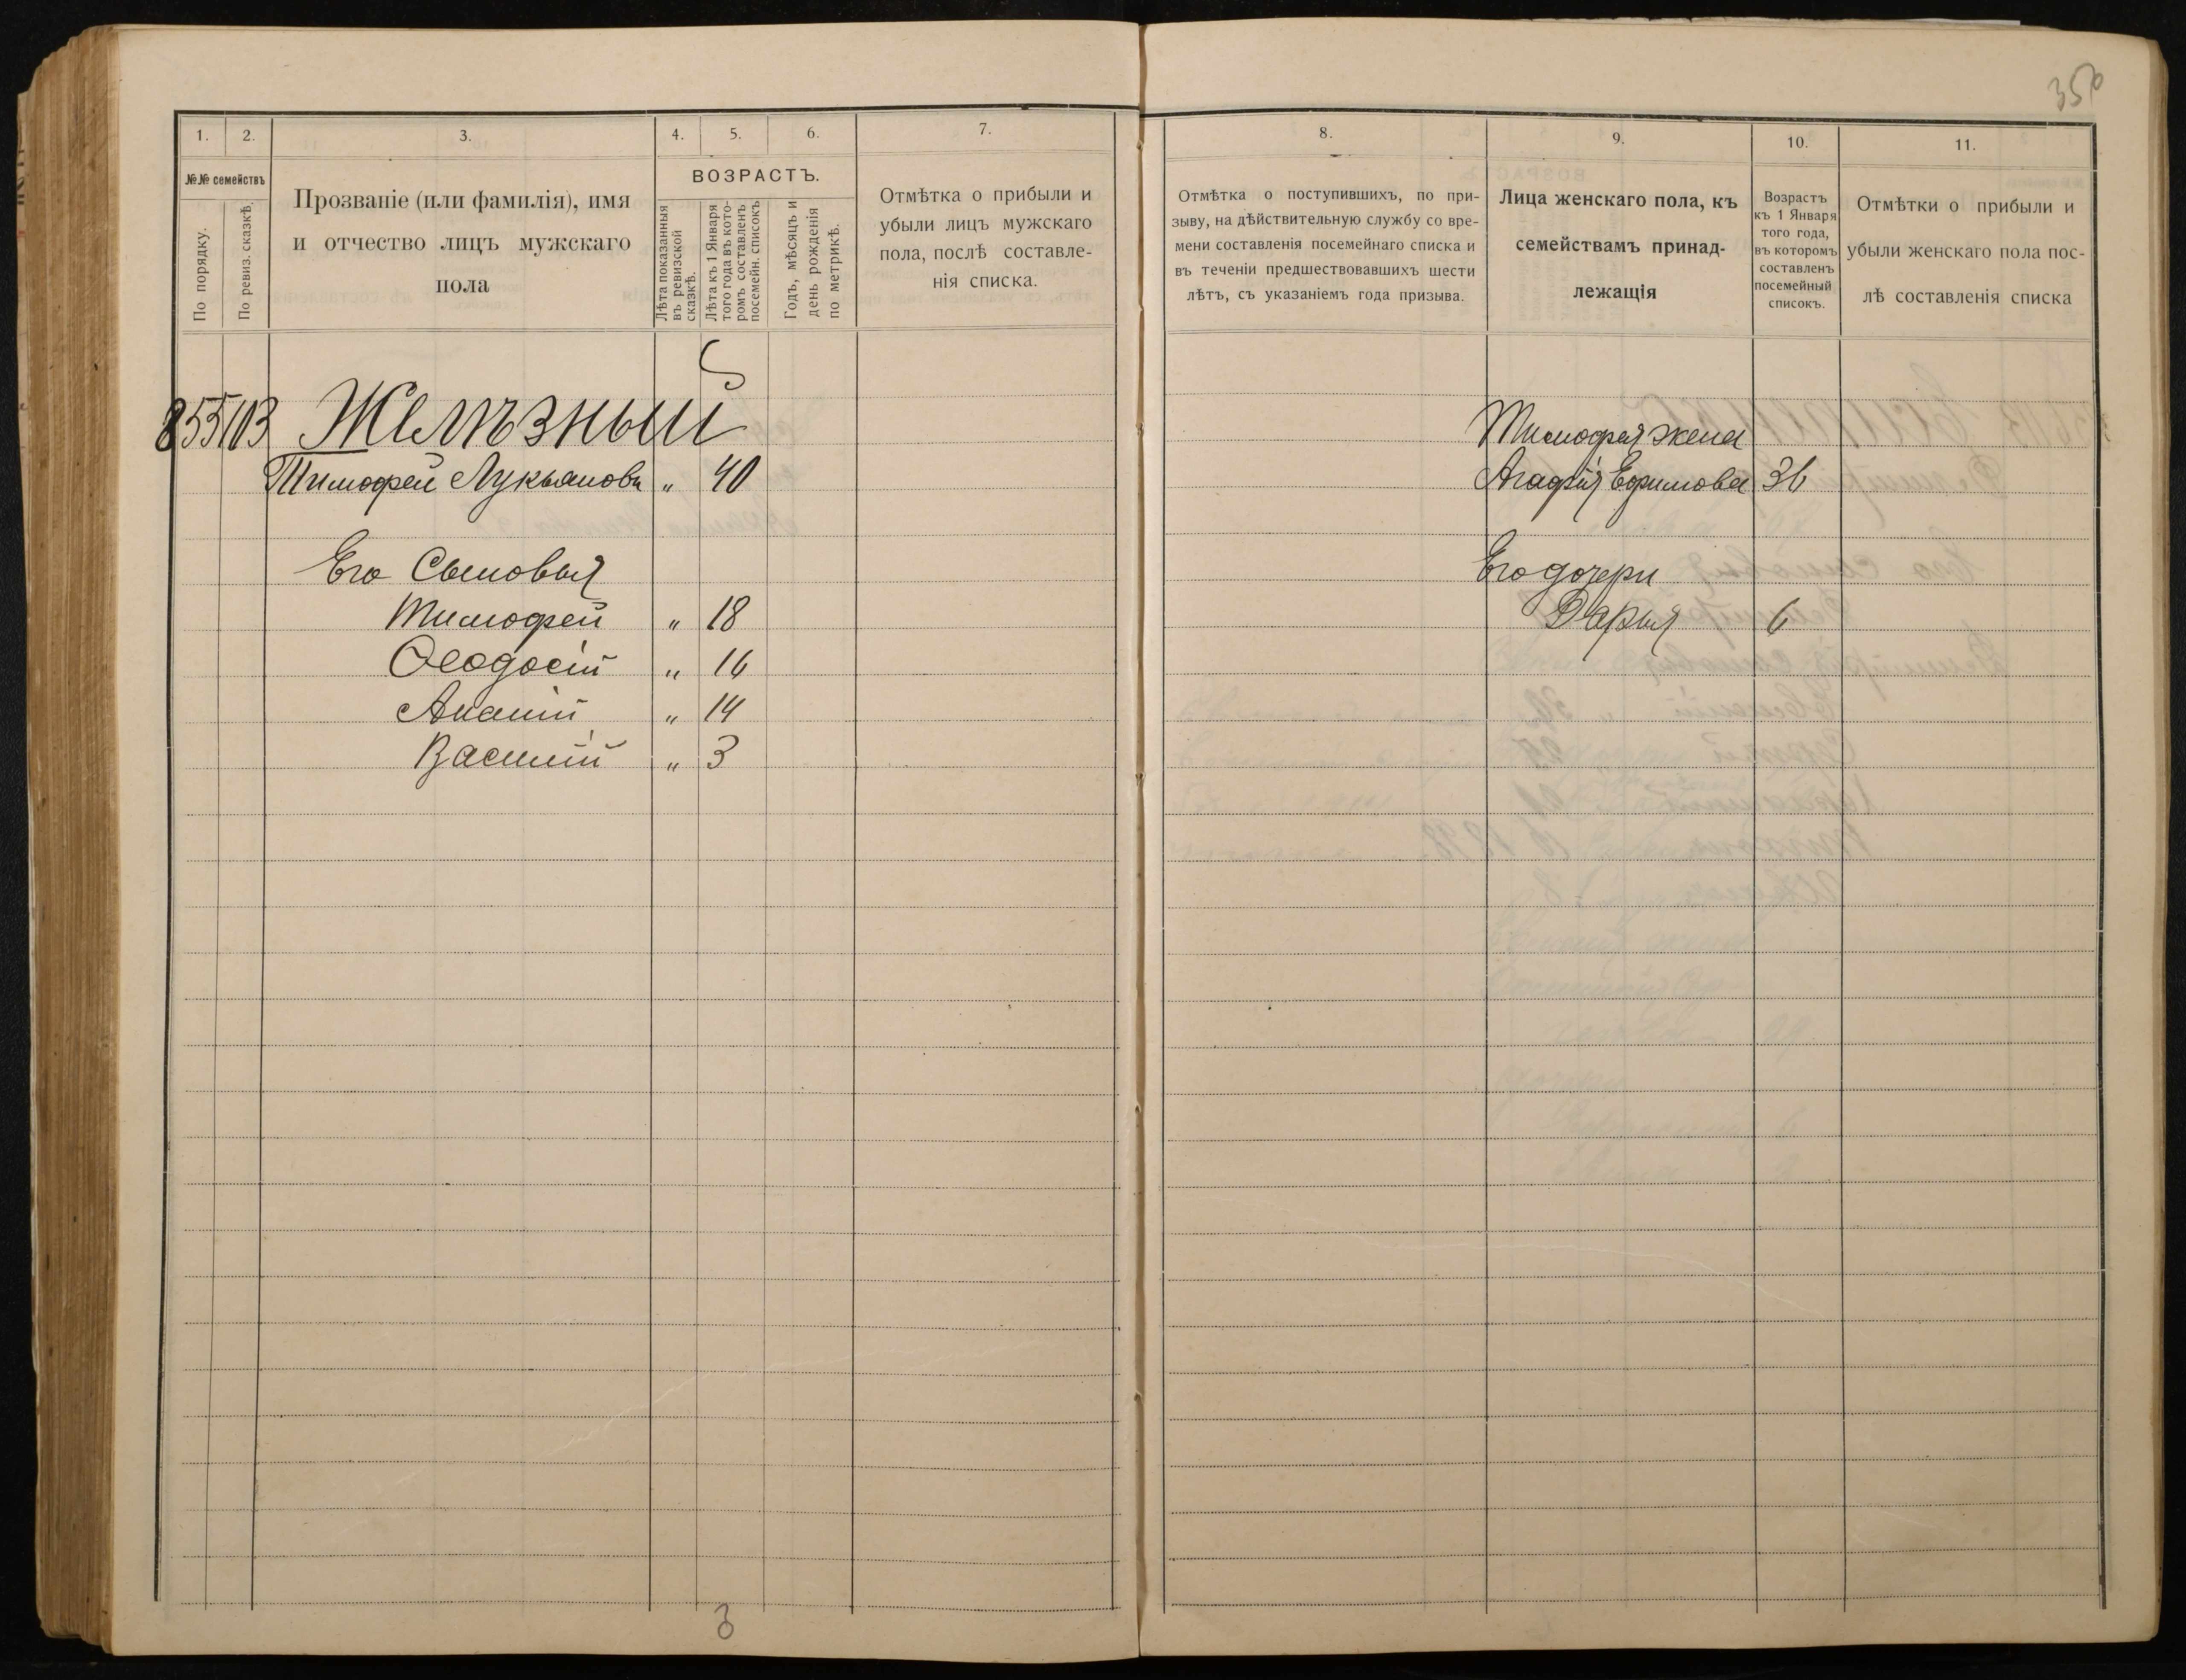 350
1. 2. 3. 4. 5. 6. 7.
№№ семействъ
По порядку.
По ревиз. сказкѣ.
Прозваніе (или фамилія), имя
и отчество лицъ мужскаго
пола
ВОЗРАСТЪ.
Лѣта показанныя
въ ревизской
сказкѣ.
Лѣта къ 1 Января
того года въ кото-
ромъ составленъ
посемейн. списокъ
Годъ, мѣсяцъ и
день рожденія
по метрикѣ.
Отмѣтка о прибыли и
убыли лицъ мужскаго
пола, послѣ составле-
нія списка.
855 103 Желѣзный
Тимофей Лукьяновъ „ 40
Его Сыновья
Тимофей „ 18
Ѳеодосій „ 16
Ананій „ 14
Василій „ 3
8. 9. 10. 11.
Отмѣтка о поступившихъ, по при-
зыву, на дѣйствительную службу со вре-
мени составленія посемейнаго списка и
въ теченіи предшествовавшихъ шести
лѣтъ, съ указаніемъ года призыва.
Лица женскаго пола, къ
семействамъ принад-
лежащія
Возрастъ
къ 1 Января
того года,
въ которомъ
составленъ
посемейный
списокъ.
Отмѣтки о прибыли и
убыли женскаго пола пос-
лѣ составленія списка
Тимофея жена
Агафія Ефимова 36
Его дочери
Дарья 6